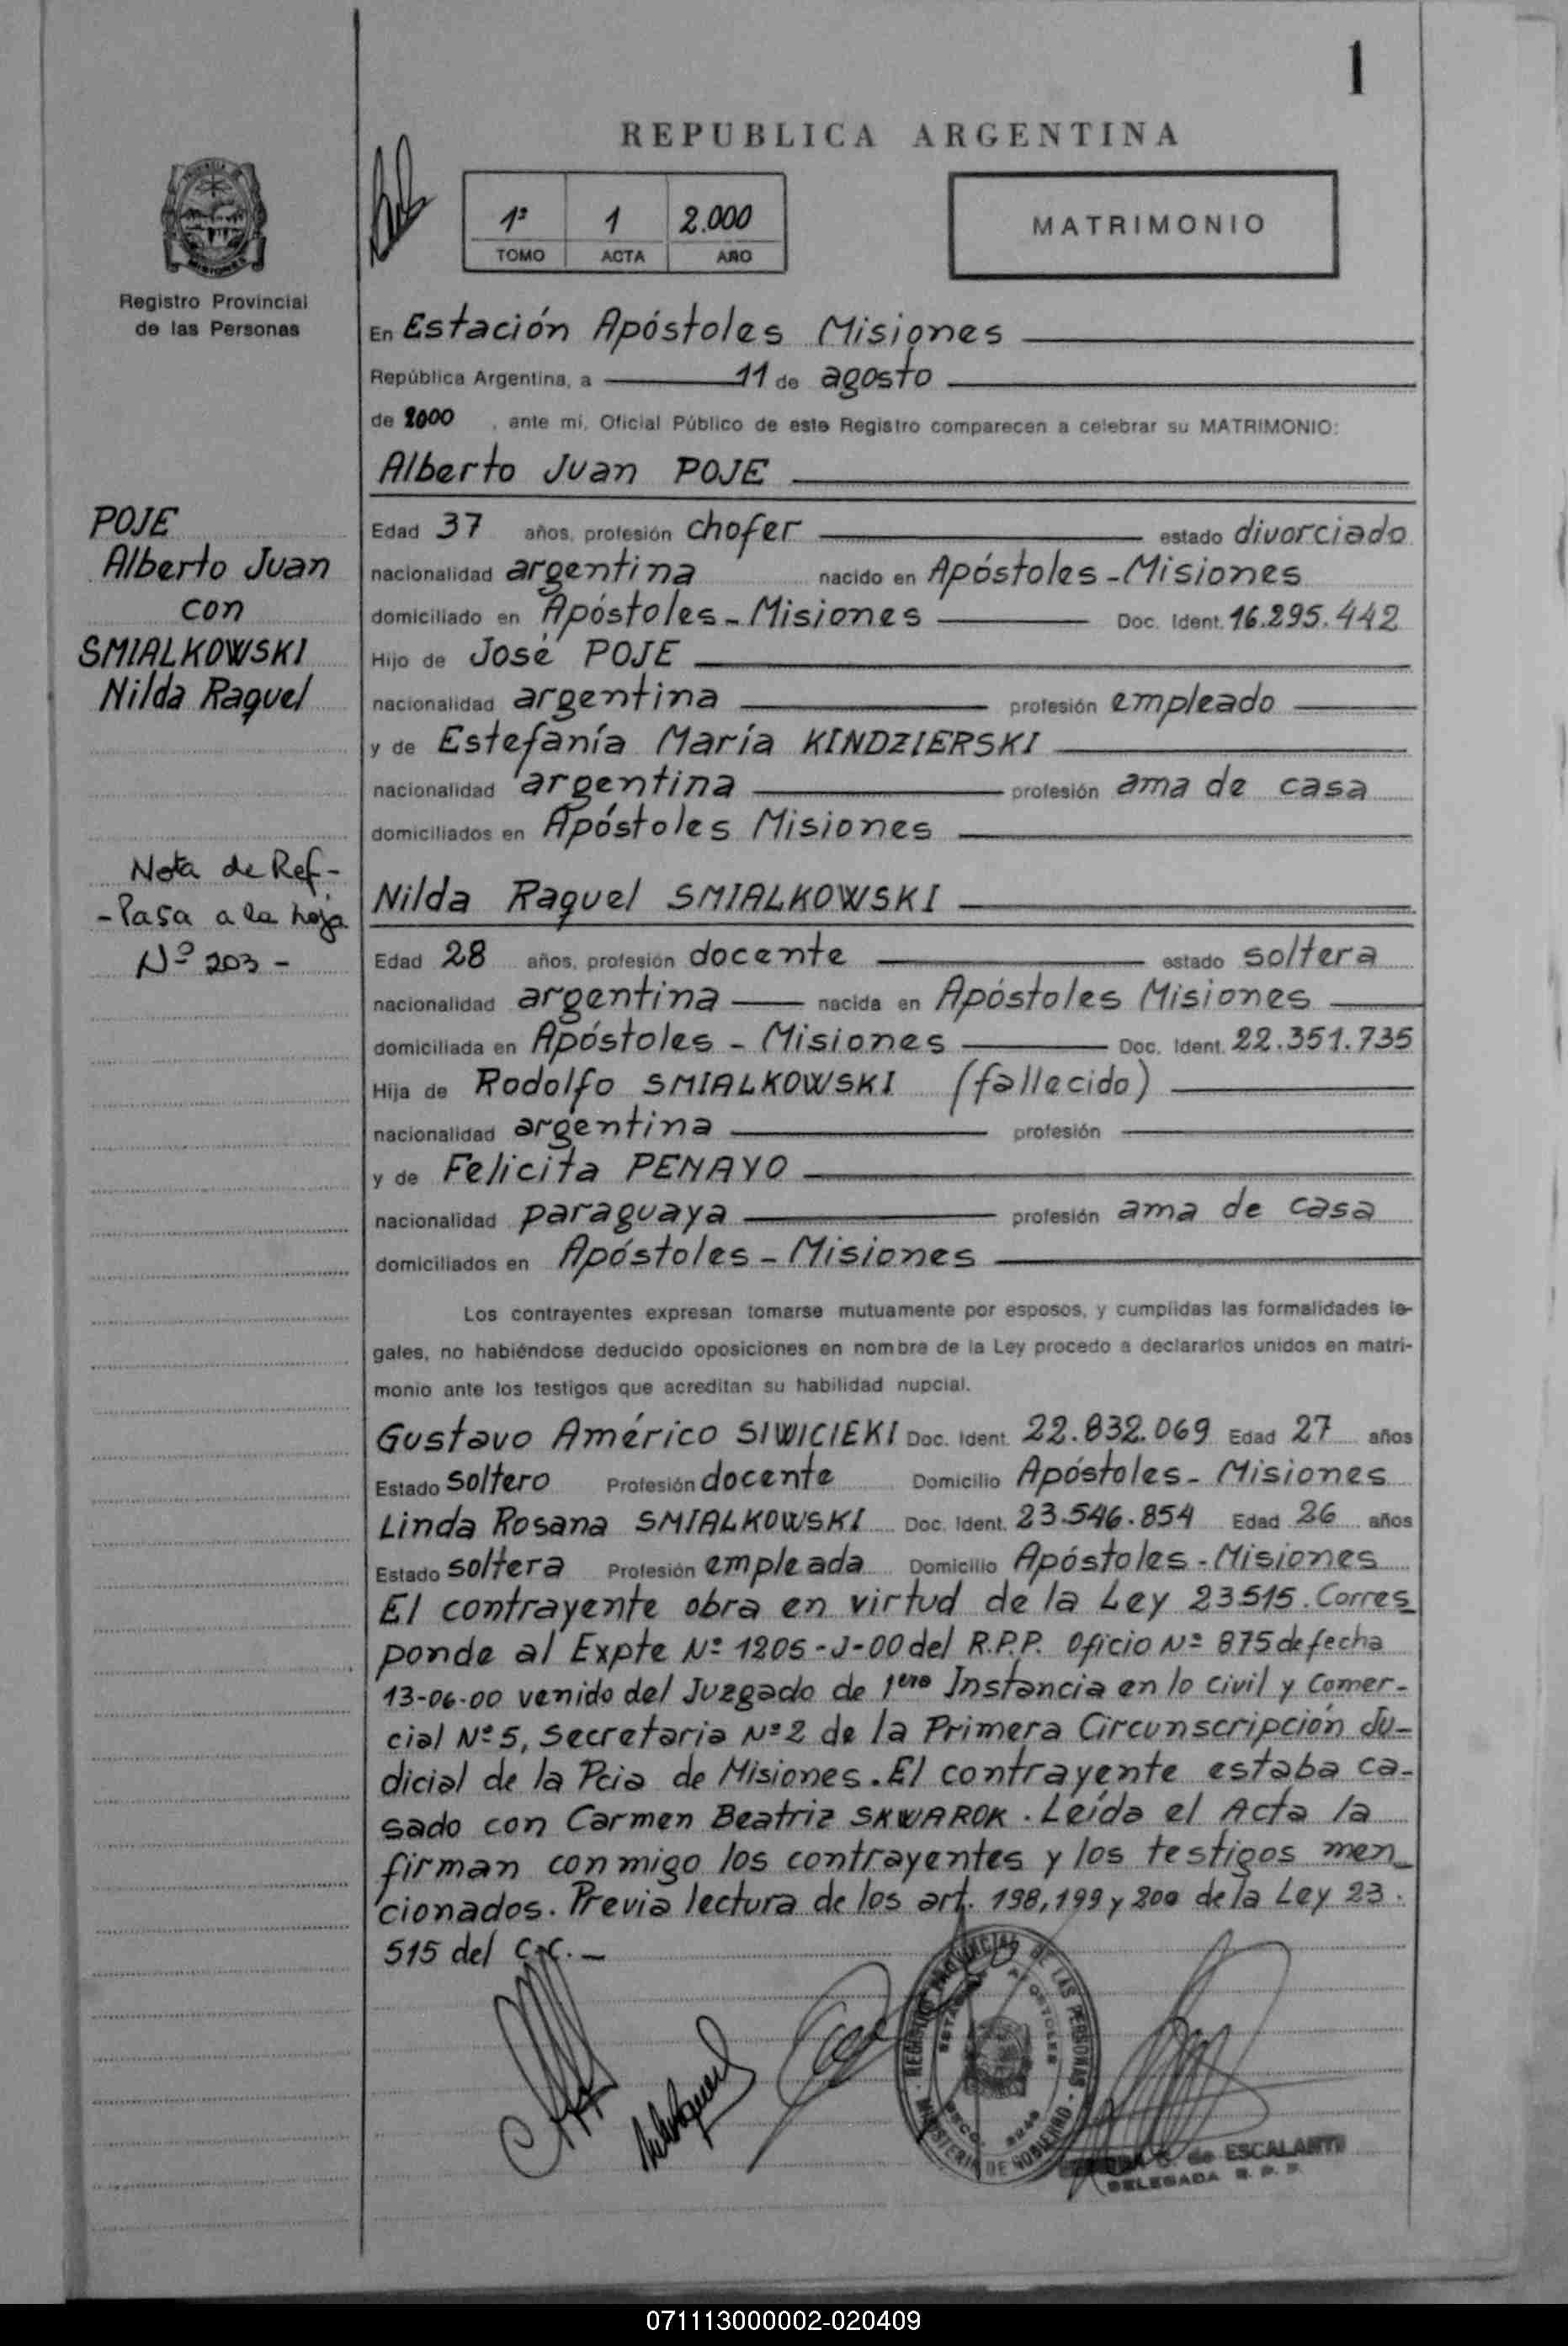 1
REPUBLICA ARGENTINA
1º 1 2.000
TOMO ACTA AÑO
MATRIMONIO
Registro Provincial
de las Personas
En Estación Apóstoles Misiones
República Argentina, a 11 de agosto
de 2000, ante mí, Oficial Público de este Registro comparecen a celebrar su MATRIMONIO:
Alberto Juan POJE
POJE
Alberto Juan
con
SMIALKOWSKI
Nilda Raquel
Edad 37 años, profesión chofer estado divorciado
nacionalidad argentina nacido en Apóstoles - Misiones
domiciliado en Apóstoles - Misiones Doc. Ident. 16.295.442
Hijo de José POJE
nacionalidad argentina profesión empleado
y de Estefanía María KINDZIERSKI
nacionalidad argentina profesión ama de casa
domiciliados en Apóstoles Misiones
Nota de Ref-
- Pasa a la hoja
Nº 203 -
Nilda Raquel SMIALKOWSKI
Edad 28 años, profesión docente estado soltera
nacionalidad argentina nacida en Apóstoles Misiones
domiciliada en Apóstoles - Misiones Doc. Ident. 22.351.735
Hija de Rodolfo SMIALKOWSKI (fallecido)
nacionalidad argentina profesión
y de Felicita PENAYO
nacionalidad paraguaya profesión ama de casa
domiciliados en Apóstoles - Misiones
Los contrayentes expresan tomarse mutuamente por esposos, y cumplidas las formalidades le-
gales, no habiéndose deducido oposiciones en nombre de la Ley procedo a declararlos unidos en matri-
monio ante los testigos que acreditan su habilidad nupcial.
Gustavo Américo SIWICIEKI Doc. Ident. 22.832.069 Edad 27 años
Estado soltero Profesión docente Domicilio Apóstoles - Misiones
Linda Rosana SMIALKOWSKI Doc. Ident. 23.546.854 Edad 26 años
Estado soltera Profesión empleada Domicilio Apóstoles - Misiones
El contrayente obra en virtud de la Ley 23515. Corres
ponde al Expte Nº 1205-J-00 del R.P.P. Oficio Nº 875 de fecha
13-06-00 venido del Juzgado de 1era Instancia en lo civil y Comer-
cial Nº 5, Secretaria Nº 2 de la Primera Circunscripción Ju-
dicial de la Pcia de Misiones. El contrayente estaba ca-
sado con Carmen Beatriz SKWAROK. Leída el Acta la
firman conmigo los contrayentes y los testigos men
cionados. Previa lectura de los art. 198, 199 y 200 de la Ley 23.
515 del C.C. -
REGISTRO PROVINCIAL DE LAS PERSONAS
MINISTERIO DE GOBIERNO
APOSTOLES
de ESCALANTE
DELEGADA R. P. P.
071113000002-020409